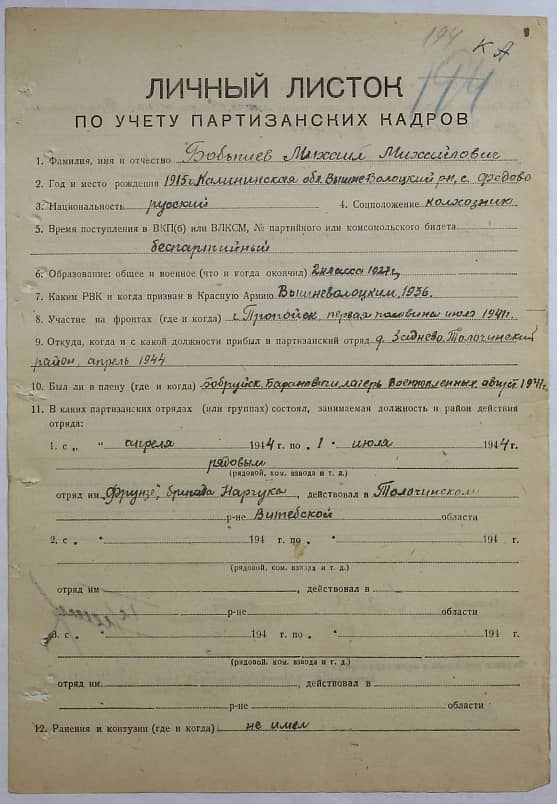 194 К А
194
ЛИЧНЫЙ ЛИСТОК
ПО УЧЕТУ ПАРТИЗАНСКИХ КАДРОВ
1. Фамилия, имя и отчество Михаил Михайлович
2. Год и место рождения 1915 г Калининская обл. Вышне Волоцкий р-н, с. Федово
3. Национальность русский 4. Соцположение колхозник
5. Время поступления в ВКП(б) или ВЛКСМ, № партийного или комсомольского билета
беспартийный
6. Образование: общее и военное (что и когда окончил) 2 класса 1927 г,
7. Каким РВК и когда призван в Красную Армию Вышневолоцким, 1936.
8. Участие на фронтах (где и когда) г. Пропойск, первая половина июля 1941 г.
9. Откуда, когда и с какой должности прибыл в партизанский отряд д. Заднево, Толочинский
район, апрель 1944
10. Был ли в плену (где и когда) Бобруйск, Барановичи, лагерь военнопленных август 1941 г
11. В каких партизанских отрядах (или группах) состоял, занимаемая должность и район действия
отряда:
1. с „ “ апреля 1944 г. по „ 1 “ июля 1944 г.
рядовым
(рядовой, ком. взвода и т. д.)
отряд им. Фрунзе, бригада , действовал в Толочинском
р-не Витебской области
2. с „ “ 194 г. по „ “ 194 г.
(рядовой, ком. взвода и т. д.)
отряд им , действовал в
р-не области
3. с „ “ 194 г. по „ “ 194 г.
(рядовой, ком. взвода и т. д.)
отряд им. , действовал в
р-не области
12. Ранения и контузии (где и когда) не имел